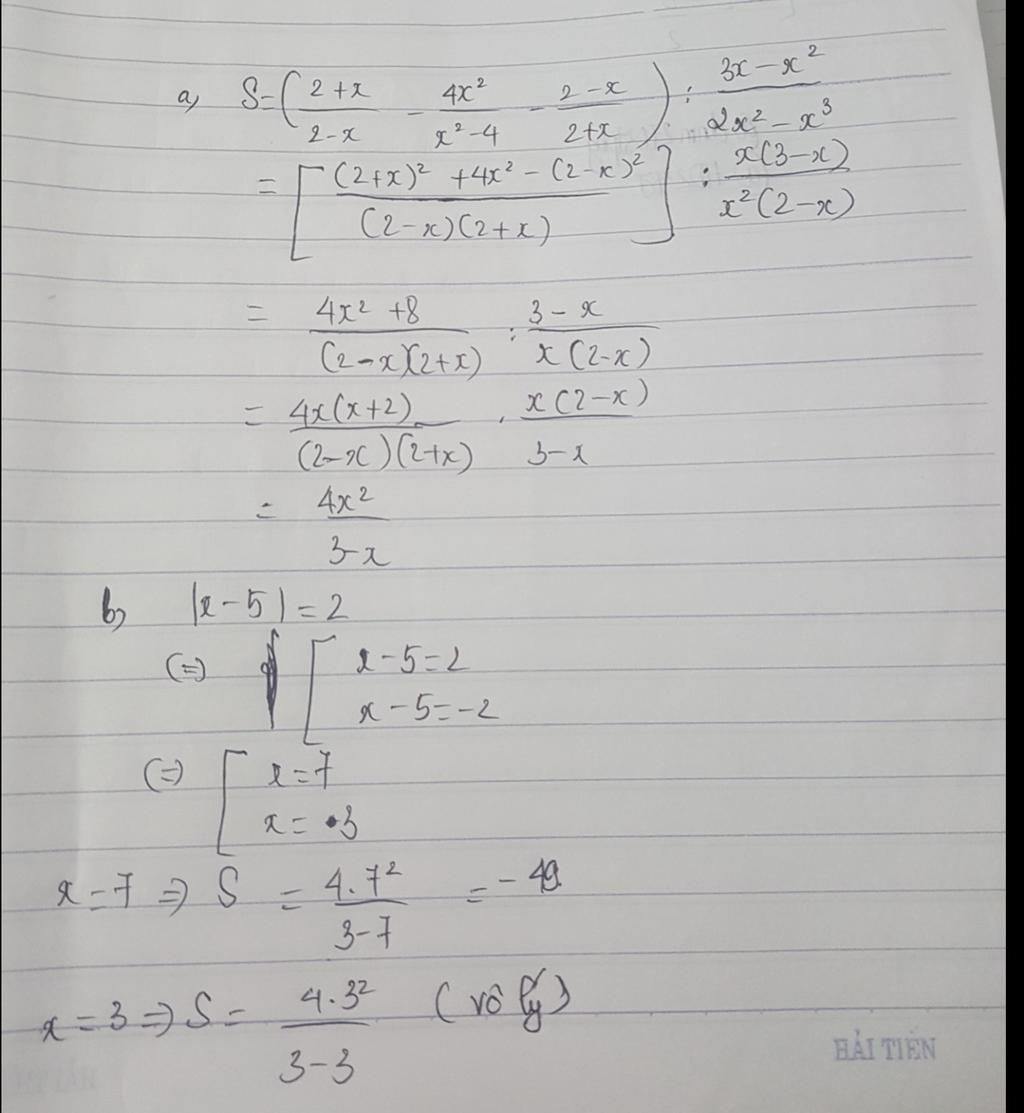 a, S=(2+x/2-x - 4x²/x²-4 - 2-x/2+x) : 3x-x²/2x²-x³
= [(2+x)² +4x² - (2-x)²/(2-x)(2+x)] : x(3-x)/x²(2-x)
= 4x² +8/(2-x)(2+x) : 3-x/x(2-x)
= 4x(x+2)/(2-x)(2+x) . x(2-x)/3-x
= 4x²/3-x
b, |x-5|=2
(=) [ x-5=2
x-5=-2
(=) [ x=7
x= 3
x=7 => S = 4.7²/3-7 = -49
x=3 => S = 4.3²/3-3 (vô lý)
HẢI TIẾN